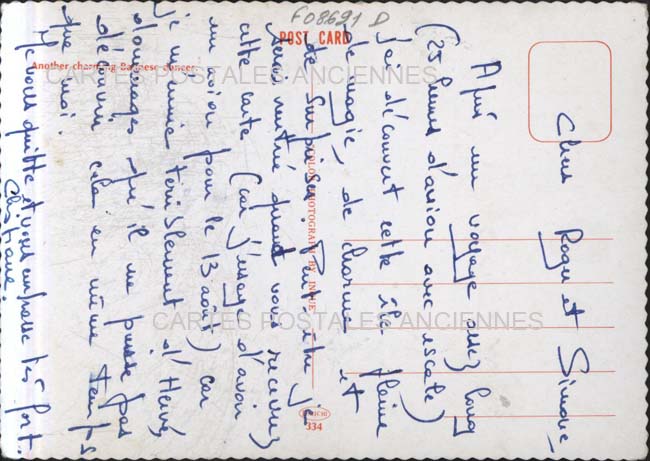 F08691 D
POST CARD
Another charming Balinese dancer
COLOR PHOTOGRAPH BY INOUE
334
CARTES POSTALES ANCIENNES
CARTES POSTALES ANCIENNES
Chers Roger et Simone,
Après un voyage assez long
(25 heures d'avion avec escale)
j'ai découvert cette île pleine
de magie, de charme et
de surprises. Peut être je
serai rentrée quand vous recevrez
cette carte (car j'essaye d'avoir
un avion pour le 13 août) car
je m'ennuie terriblement d'Hervé,
dommage qu'il ne puisse pas
découvrir cela en même temps
que moi.
Je vous quitte et vous embrasse très fort.
Christiane.